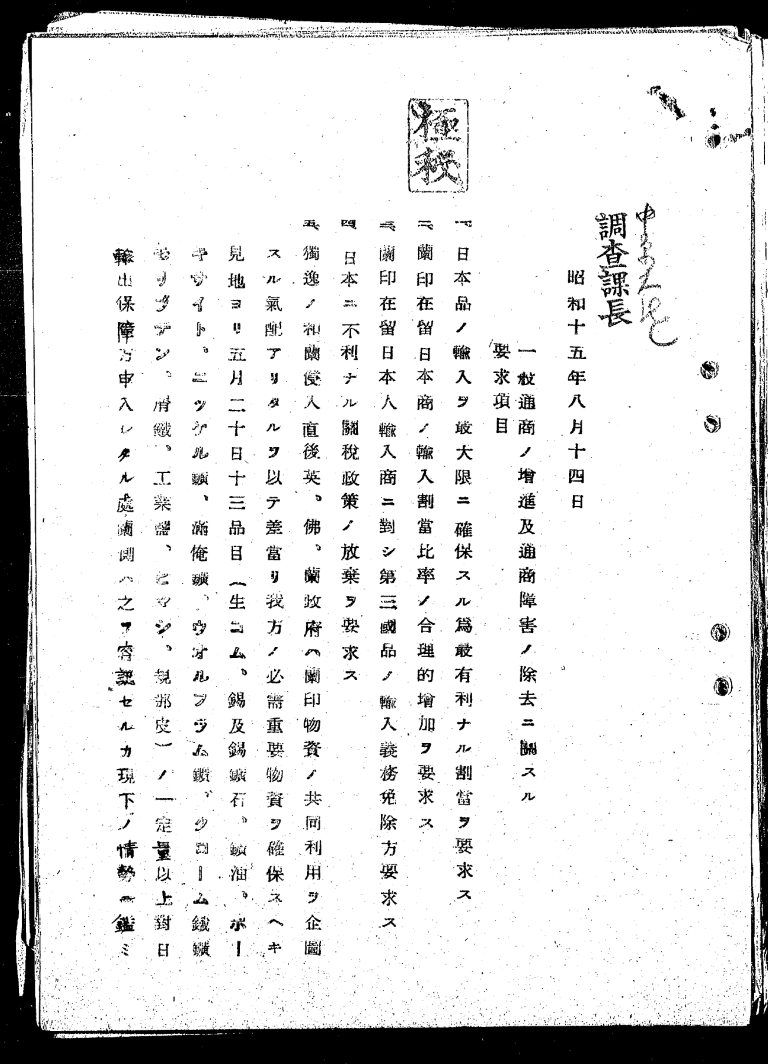 極秘
調査課長
昭和十五年八月十四日
一般通商ノ増進及通商障害ノ除去ニ關スル
要求項目
一、日本品ノ輸入ヲ最大限ニ確保スル爲最有利ナル割當ヲ要求ス
二、蘭印在留日本商ノ輸入割當比率ノ合理的増加ヲ要求ス
三、蘭印在留日本人輸入商ニ對シ第三國品ノ輸入義務免除方要求ス
四、日本ニ不利ナル關税政策ノ放棄ヲ要求ス
五、獨逸ノ和蘭侵入直後英、佛、蘭政府ハ蘭印物資ノ共同利用ヲ企圖
スル氣配アリタルヲ以テ差當リ我方ノ必需重要物資ヲ確保スヘキ
見地ヨリ五月二十日十三品目（生ゴム、錫及錫鑛石、鑛油、ボー
キサイト、ニツケル鑛、滿俺鑛、ウオルフラム鑛、クローム鐵鑛
モリブデン、屑鐵、工業鹽、ヒマシ、規那皮）ノ一定量以上對日
輸出保障方申入レタル處蘭側ハ之ヲ容認セルカ現下ノ情勢ニ鑑ミ